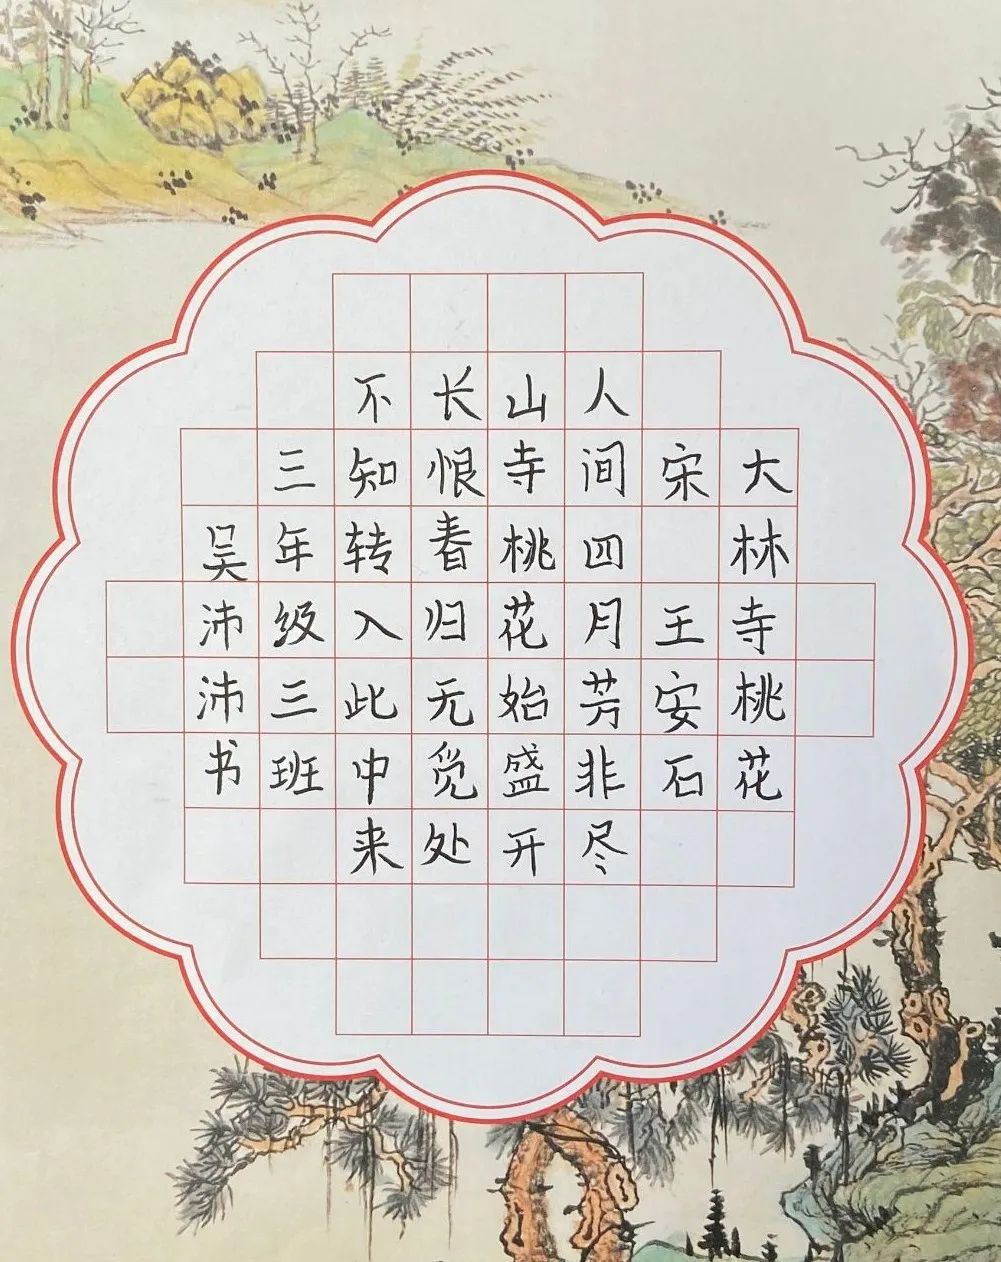 大林寺桃花
宋 王安石
人间四月芳非尽
山寺桃花始盛开
长恨春归无觅处
不知转入此中来
三年级三班
吴沛沛书